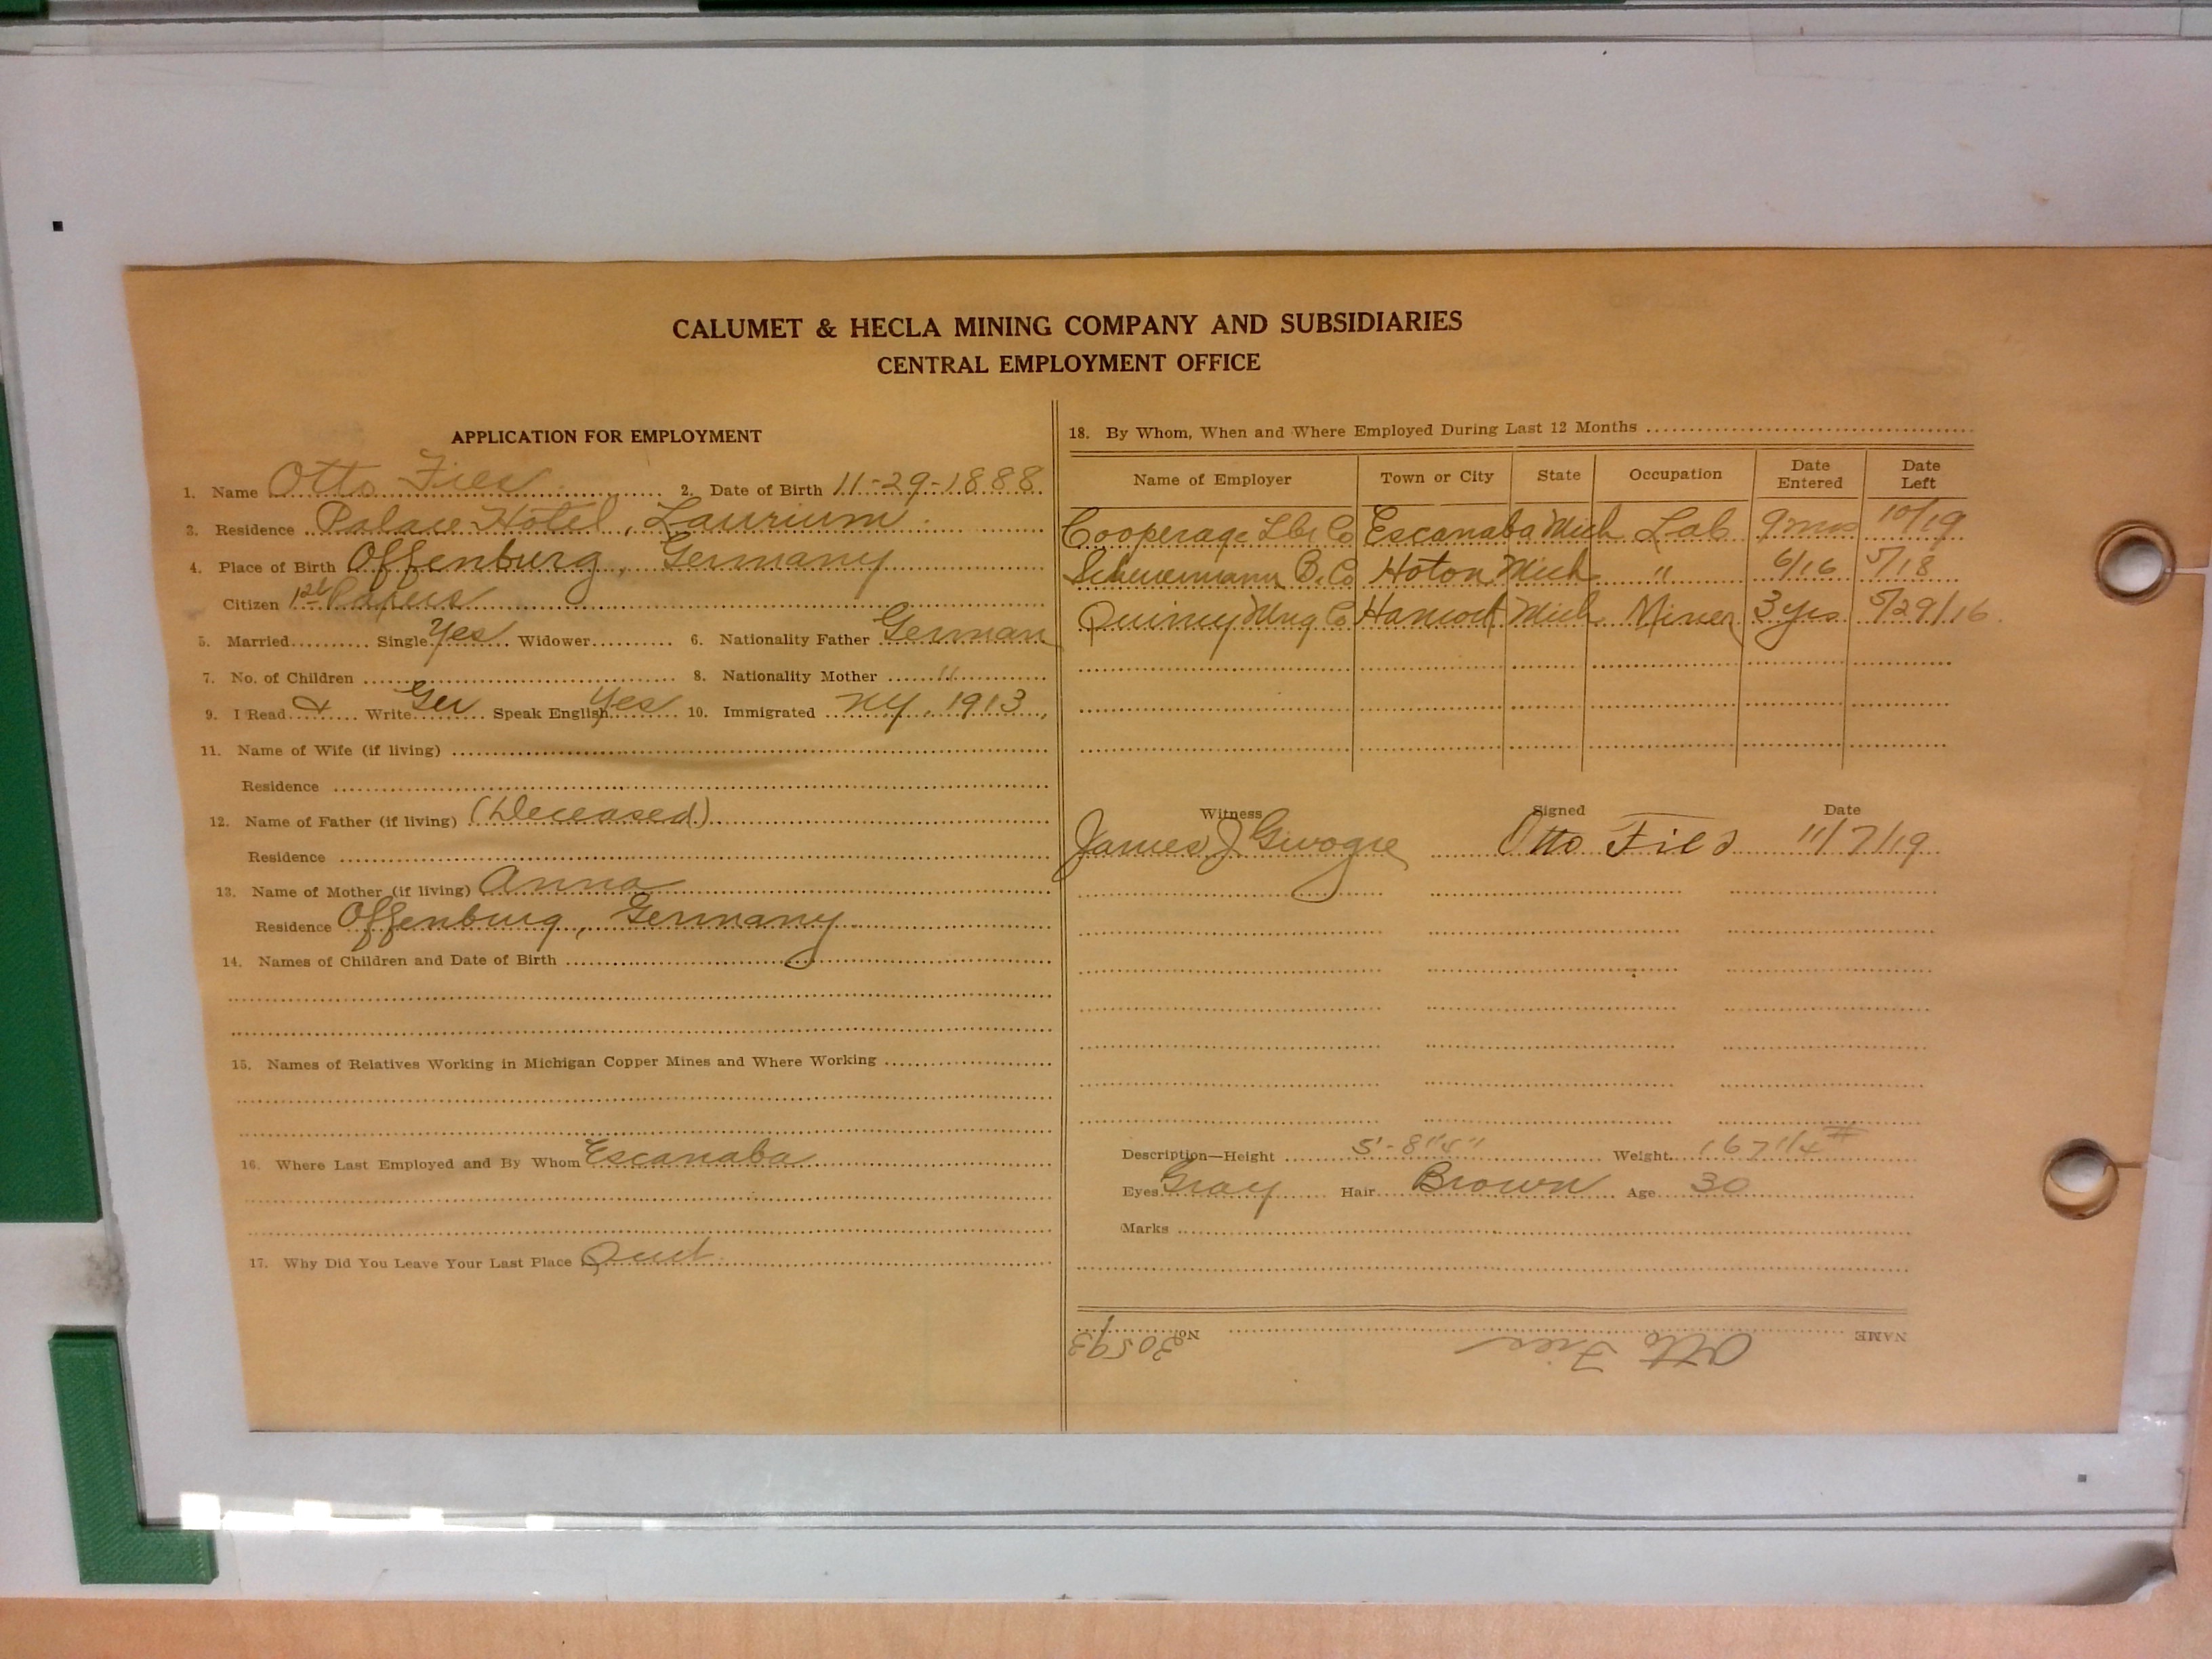 CALUMET & HECLA MINING COMPANY AND SUBSIDIARIES
CENTRAL EMPLOYMENT OFFICE
APPLICATION FOR EMPLOYMENT
1. Name Otto Fies 2. Date of Birth 11-29-1888
3. Residence Palace Hotel, Laurium
4. Place of Birth Offenburg, Germany
Citizen 1st Papers
5. Married Single Yes Widower 6. Nationality Father German
7. No. of Children 8. Nationality Mother "
9. I Read & Write Ger Speak English Yes 10. Immigrated NY, 1913
11. Name of Wife (if living)
Residence
12. Name of Father (if living) (Deceased)
Residence
13. Name of Mother (if living) Anna
Residence Offenburg, Germany
14. Names of Children and Date of Birth
15. Names of Relatives Working in Michigan Copper Mines and Where Working
16. Where Last Employed and By Whom Escanaba
17. Why Did You Leave Your Last Place Quit
18. By Whom, When and Where Employed During Last 12 Months
Name of Employer Town or City State Occupation Date Entered Date Left
Cooperage Lbr Co Escanaba Mich Lab 9 mos 10/19
B. Co Hoton Mich " 6/16 5/18
Quincy Mng Co Hancock Mich Miner 3 yrs 5/29/16
Witness Signed Date
James J. Otto Fies 11/7/19
Description—Height 5'-8"1/4" Weight 167 1/4 #
Eyes Gray Hair Brown Age 30
Marks
NAME Otto Fies No. 30593